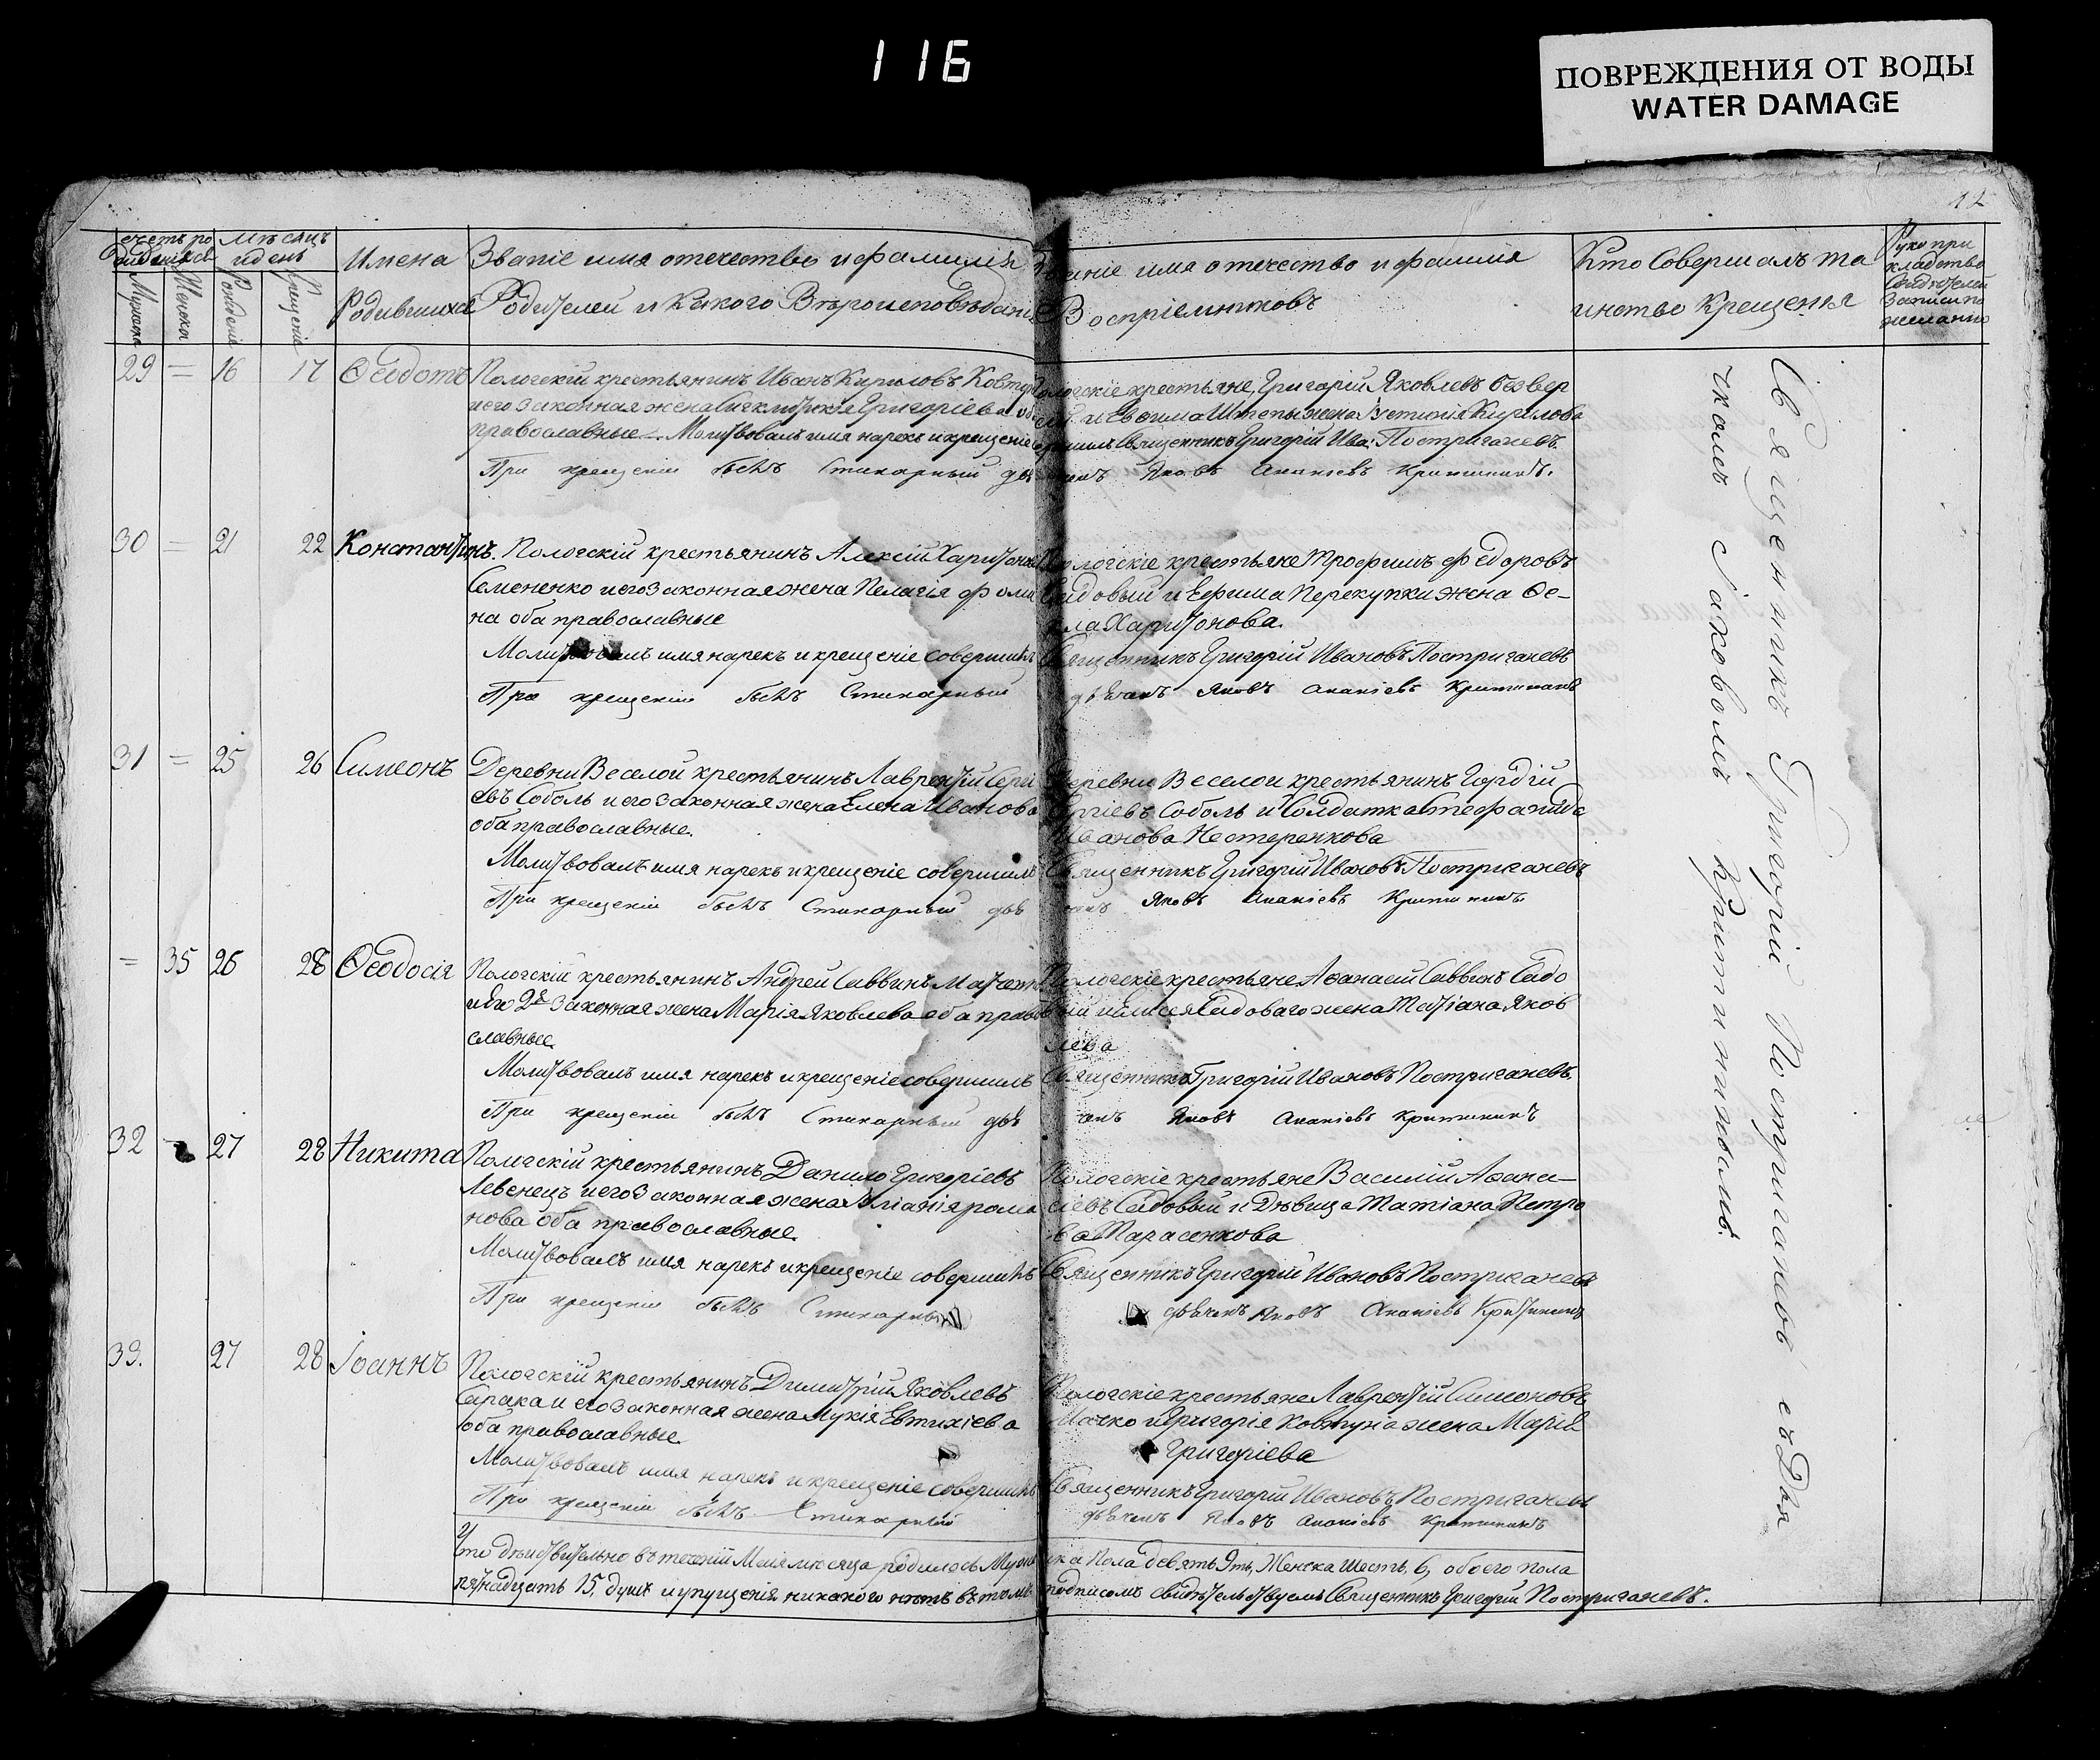 116
ПОВРЕЖДЕНИЯ ОТ ВОДЫ
WATER DAMAGE
12
Мѣсяцъ
и день
Имена
Родившихся
Званіе имя отечество и фамилія
Родителей и Какого Вѣроисповѣданія
Званіе имя отечество и фамилія
Воспріемниковъ
Кто Совершалъ та
инство Крещенія
Руко при
кладство
Свидѣтелей
записи по
желанію
29 = 16 17 Ѳеодотъ
Пологскій крестьянинъ Иванъ Кириловъ
и его законная жена Григоріева
православные. Молитвовалъ имя нарекъ и крещеніе
При крещеніи былъ Стихарный дья
Пологскіе крестьяне, Григорій Яковлевъ
Кирилова
Священникъ Григорій Ива: Постригачевъ
Яковъ Ананіевъ Критининъ.
30 = 21 22 Константинъ.
Пологскій крестьянинъ Алексій Харитоновъ
Семененко и его законная жена Пелагія Фоми
на оба православные
Молитвовалъ имя нарекъ и крещеніе совершилъ
При крещеніи былъ Стихарный
Пологскіе крестьяне Трофимъ Федоровъ
Садовый и Ефима Перекупки жена Ѳе-
кла Харитонова.
Священникъ Григорій Ивановъ Постригачевъ
дьячекъ Яковъ Ананіевъ Критининъ
31 = 25 26 Симеонъ
Деревни Веселой крестьянинъ Лаврентій Сергі
евъ Соболь и его законная жена Елена Иванова
оба православные.
Молитвовалъ имя нарекъ и крещеніе совершилъ
При крещеніи былъ Стихарный дья
Деревни Веселой крестьянинъ Гордій
Сергіевъ Соболь и Солдатка Стефанида
Иванова Нестеренкова
Священникъ Григорій Ивановъ Постригачевъ
чекъ Яковъ Ананіевъ Критининъ
= 35 26 28 Ѳеодосія
Пологскій крестьянинъ Андрей Саввинъ
и его 2я законная жена Марія Яковлева оба право
славные.
Молитвовалъ имя нарекъ и крещеніе совершилъ
При крещеніи былъ Стихарный дья
Пологскіе крестьяне Аѳанасій Саввинъ Садо
вый и Елисея Садоваго жена Татіана Яков
лева
Священникъ Григорій Ивановъ Постригачевъ
Яковъ Ананіевъ Критининъ
32 27 28 Никита
Пологскій крестьянинъ Данило Григоріевъ
Левенецъ и его законная жена Іуліанія Рома
нова оба православные.
Молитвовалъ имя нарекъ и крещеніе совершилъ
При крещеніи былъ Стихарный
Пологскіе крестьяне Василій Аѳана-
сіевъ Садовый и Дѣвица Татіана Петро
ва Тарасенкова
Священникъ Григорій Ивановъ Постригачевъ
дьячекъ Яковъ Ананіевъ Критининъ
33. 27 28 Іоаннъ
Пологскій крестьянинъ Димитрій Яковлевъ
Сирака и его законная жена Лукія Евтихіева
оба православные.
Молитвовалъ имя нарекъ и крещеніе совершилъ
При крещеніи былъ Стихарный
Пологскіе крестьяне Лаврентій Симоновъ
Мачко и Григорія Ковтуна жена Марія
Григоріева
Священникъ Григорій Ивановъ Постригачевъ
дьячекъ Яковъ Ананіевъ Критининъ
Что дѣйствительно въ теченіи Маія мѣсяца родилось Мужес
ка Пола девять 9ть, Женска Шесть, 6, обоего пола
пятнадцать 15, душъ и упущенія никакого нѣтъ въ томъ
подписомъ свидѣтельствуемъ Священникъ Григорій Постригачевъ.
Священникъ Григорій Постригачевъ съ Дья
чкомъ Іаковомъ Критининымъ.